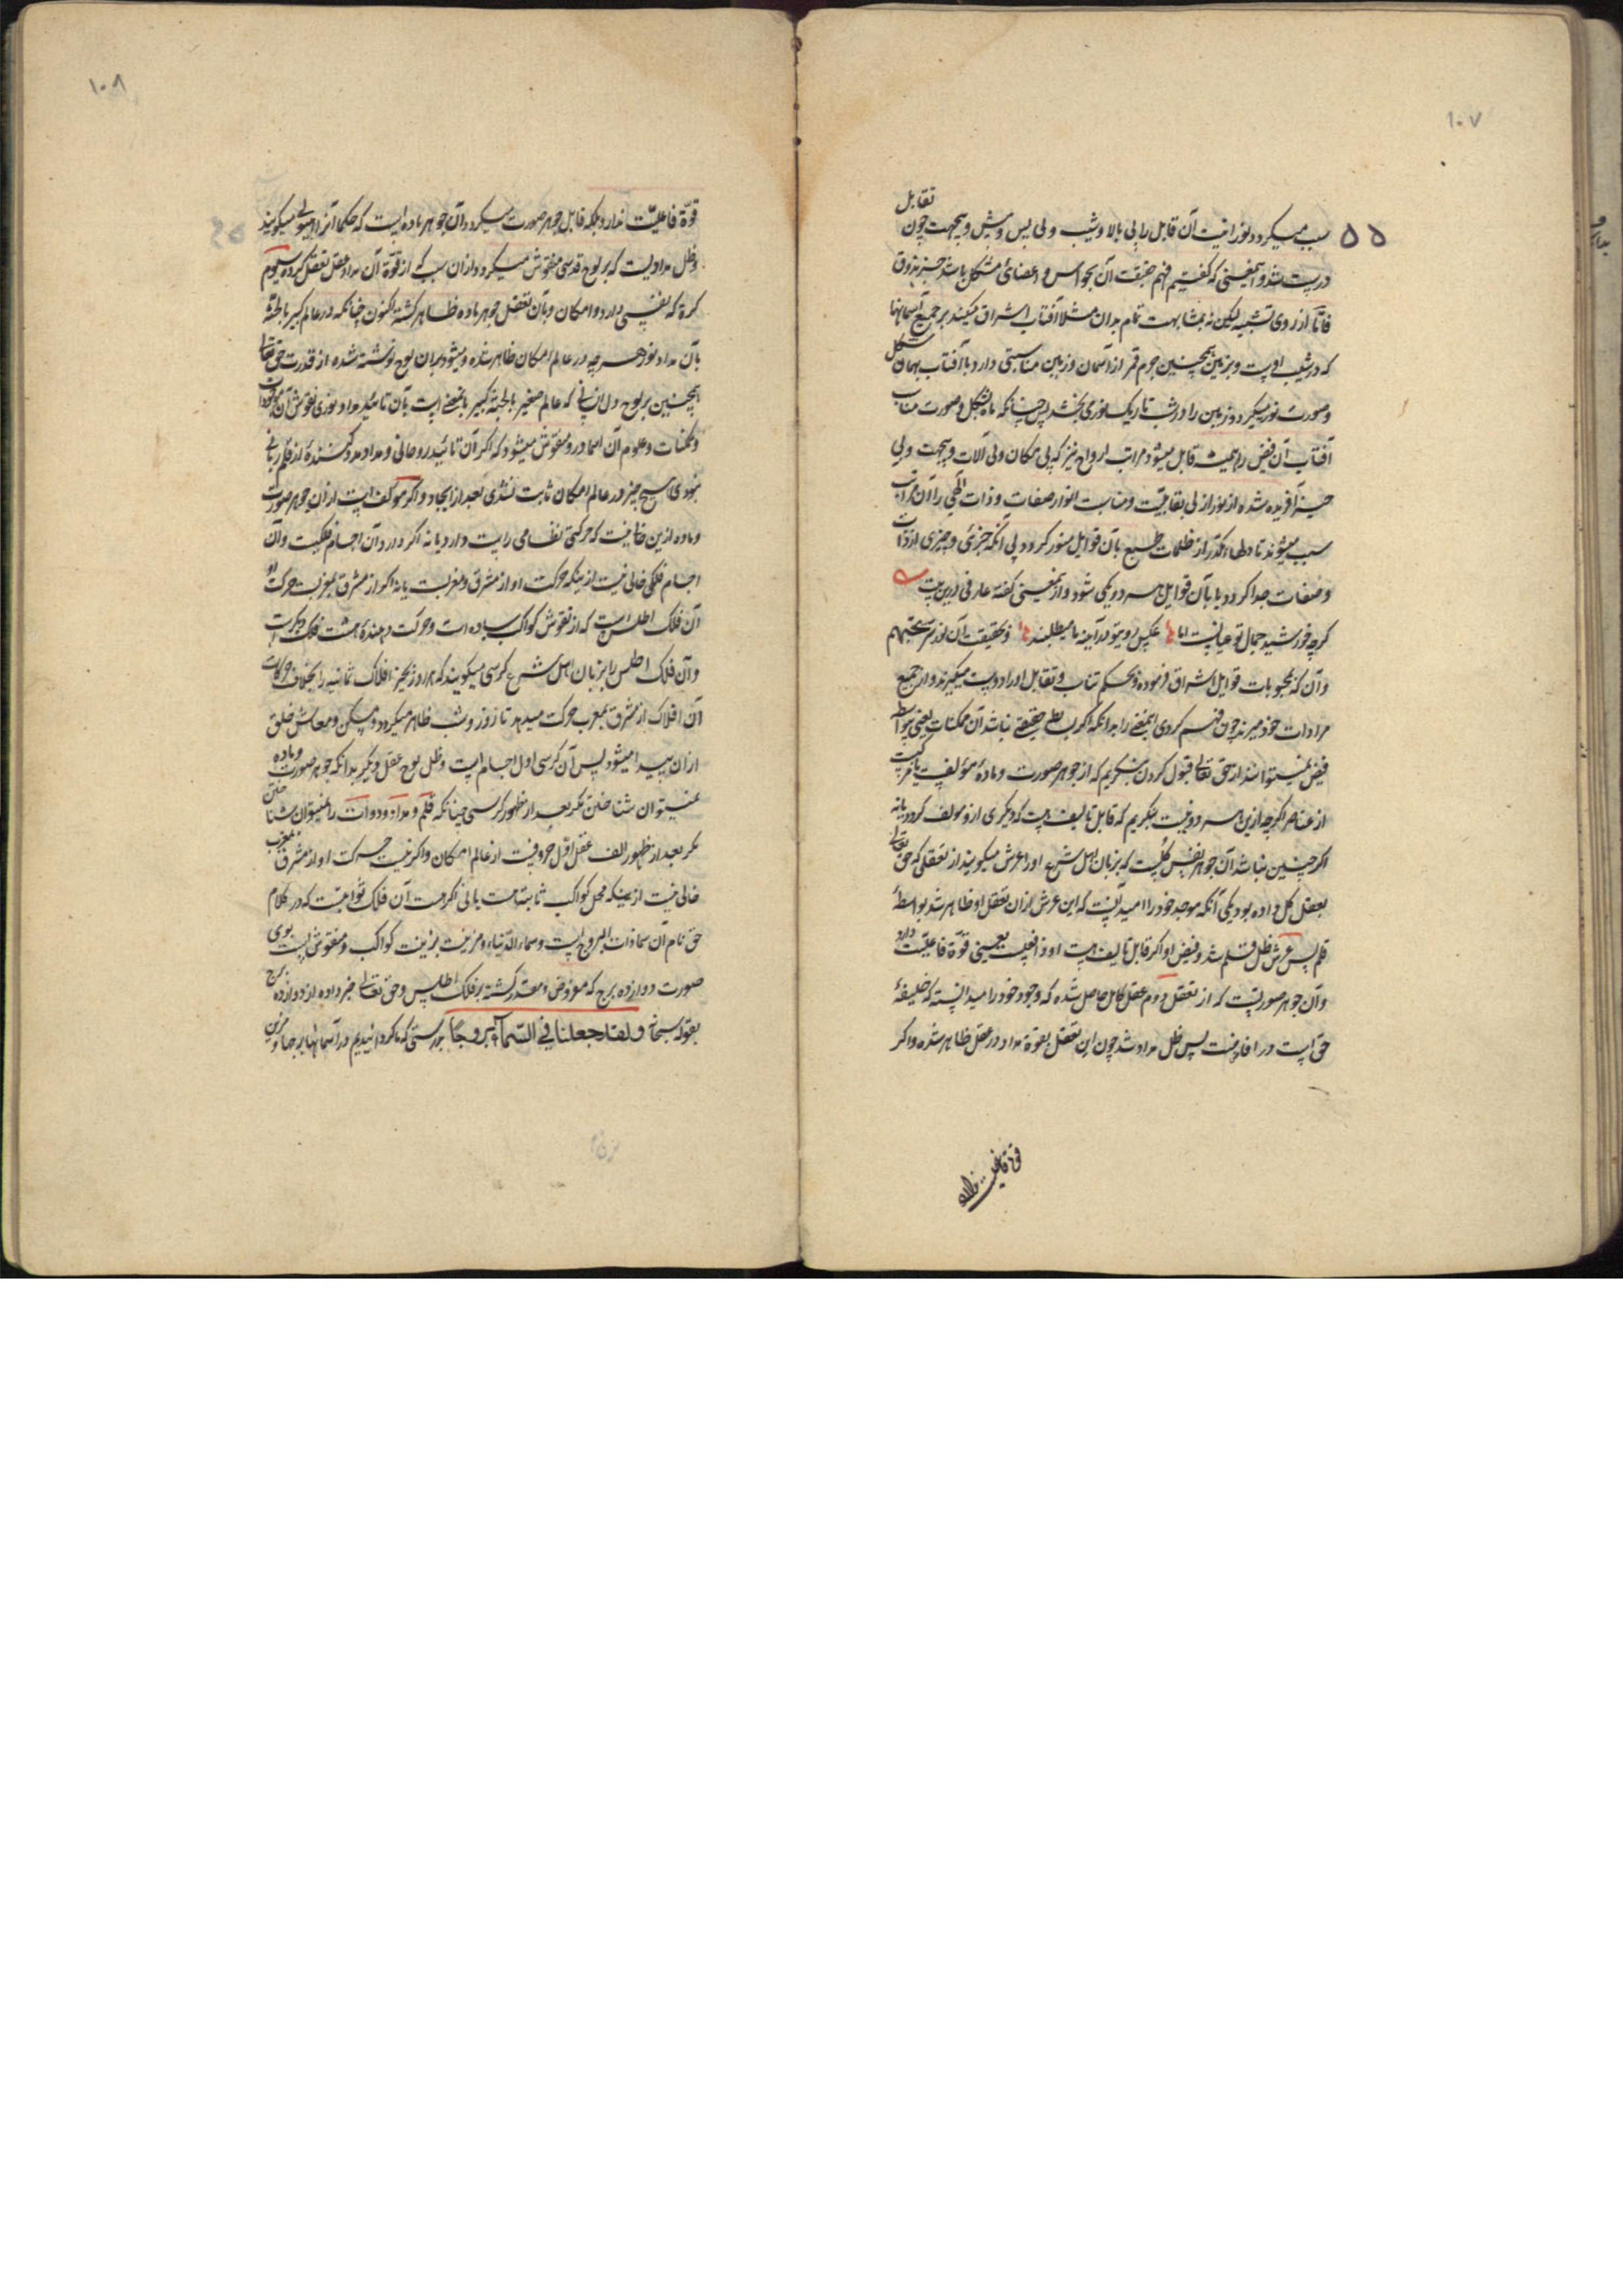 ۱۰۷
۵۵
تقابل
سبب میکردد نورانیت آن قابل را بی بالا و شیب و بی پس و پیش و بیجهت چون
درست شد و آنمعینی که کفتیم فهم حقیقت آن بحواس و اعضای مشکل باشد جز بذوق
فاما از روی تشبیه لیکن نه بمشابهت تمام بدان مثلا آفتاب اشراق میکند بر جمیع آسمانها
که در شیب اوست و بر زمین همچنین جرم قمر از آسمان و زمین مناسبتی دارد با آفتاب بهمان شکل
و صورت نور میکیرد و زمین را در شب تاریک نوری بخشد پس چنانکه ماه بشکل و صورت مناسب
آفتاب آن فیض را همیشه قابل میشود مراتب ارواح نیز که بی مکان و بی آلات و بیجهت و بی
آفریده شده از نور ازلی بقابلیت و مناسبت انوار صفات و ذات الهی را آن مراتب
سبب میشوند تا دلهاء مکدر از ظلمات طبع بآن قوابل منور کردد بی آنکه جزئی و چیزی از ذات
و صفات جدا کردد یا بآن قوابل هر دو یکی شود و از آنمعینی کفته عارفی درین بیت
کرچه خورشید جمال تو عیانست اما عکس روی تو در آینه ما میطلبند و بحقیقت آن نور
و آن که محبوبات قوابل اشراق فرموده و بحکم تناسب و تقابل او را دوست میکیرند و از جمیع
مرادات خود میبرند چون فهم کردی اینمعنی را بدانکه اکر بط حقیقی نباشد آن ممکنات یعنی بواسطه
فیض نمیتوانند از حق تعالی قبول کردن بنکریم که از جوهر صورت و مادهٔ مؤلف یا مرکبست
از عناصر اکرچه ازین هر دو نیست بنکریم که قابل تالیف هست که دیکری ازو مولف کردد یا نه
اکر چنین نباشد آن جوهر نفس کلیست که بزبان اهل شرع او را عرش میکویند از تعقلی که حق تعالی
بعقل کل داده بود یکی آنکه موجد خود را میدانست که این عرش از آن تعقل او ظاهر شد بواسطهٔ
قلم پس عرش ظل قلم شد و فیض او اکر قابل تالیف هست او واقعیست یعنی قوة فاعلیت دارد
و آن جوهر صورتیست که از تعقل دوم عقل کامل حاصل شده که وجود خود را میدانسته که خلیفهٔ
حق است در افاضت پس ظل مداد شد چون این تعقل بقوة مداد در عقل ظاهر شده و اکر
قوة فاعلیت ندارد
۱۰۸
قوة فاعلیت ندارد بلکه قابل جوهر صورت میکردد آن جوهر ماده ایست که حکما آنرا هیولی میکویند
و ظل مدادیست که بر لوح قدسی منقوش میکردد از آن سبب که از قوة آن مداد عقل تعقل کرده سیوم
کرة که نقشی دارد و امکان و بآن تعقل جوهر ماده ظاهر کشته اکنون چنانکه در عالم کبیر بالجثة
بآن مداد نور هرچه در عالم امکان ظاهر شده و میشود بران لوح نوشته شده از قدرت حق تعالی
همچنین بر لوح دل انسانی که عالم صغیر بالجثة کبیر بالمعنی است بآن تائید مداد نوری نقوش آن موجودات
و ممکنات و علوم آن اسما درو منقوش میشود که اکر آن تائید روحانی و مداد مدد کنندهٔ از قلم ربانی
نبودی هیچ چیز در عالم امکان ثابت نشدی بعد از ایجاد و اکر مؤلف است از آن جوهر صورت
و ماده ازین خالی نیست که حرکتی نفسانی راست دارد یا نه اکر دارد آن اجسام فلکیست و آن
اجسام فلکی خالی نیست ازینکه حرکت او از مشرق و مغربست یا نه اکر از مشرق بمغربست حرکت او
آن فلک اطلس است که از نقوش کواکب ساده است و حرکت دهندهٔ هشت فلک دیکرست
و آن فلک اطلس را بزبان اهل شرع کرسی میکویند که هر روز بجز افلاک ثمانیه را بخلاف حرکات
آن افلاک از مشرق بمغرب حرکت میدهد تا روز و شب ظاهر میکردد و مسکن و معاش خلق
از آن پیدا میشود پس آن کرسی اول اجسام است و ظل لوح عقل و دیکر بدانکه جوهر صورت و ماده
نمیتوان شناختن مکر بعد از ظهور کرسی چنانکه قلم و مداد و دوات را نمیتوان شناختن
مکر بعد از ظهور الف عقل اول حروفست از عالم امکان و اکر نیست حرکت او از مشرق بمغرب
خالی نیست از اینکه محل کواکب ثابتات هست یا نی اکر هست آن فلک ثوابتست که در کلام
حق نام آن سما ذات البروج است و سماء الدنیاء و مزینست بزینت کواکب و منقوش است بوی
صورت دوازده برج که مفروض و مقدر کشته بر فلک اطلس و حق تعالی خبر داده از دوازده برج
بقوله سبحانه ولقد جعلنا فی السماء بروجا بدرستی که ما کردانیدیم در آسمانها برجها و مزین